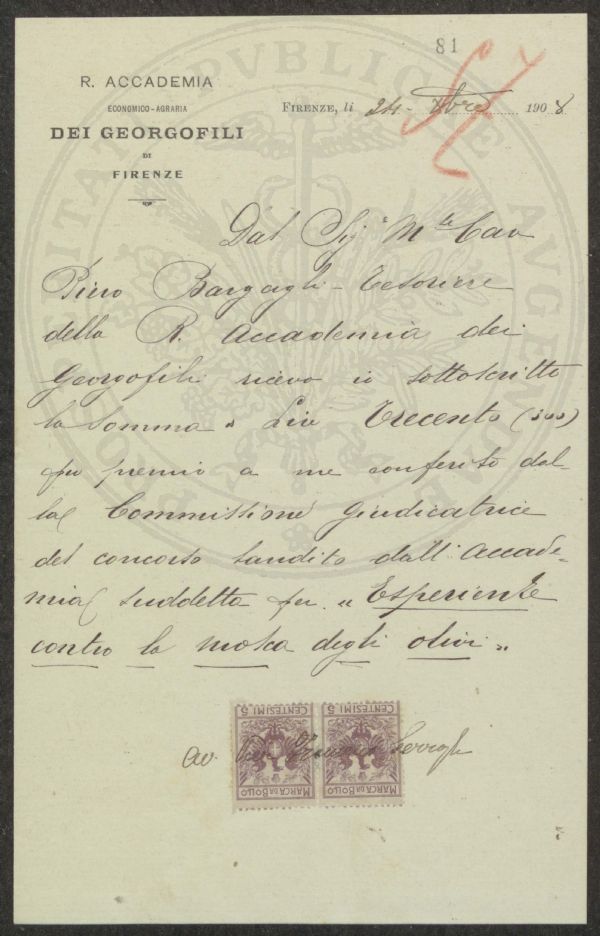 81
R. ACCADEMIA
ECONOMICO-AGRARIA
DEI GEORGOFILI
DI
FIRENZE
FIRENZE, li 24 - Xbre 1908
Dal Sig. Mse Cav
Piero Bargagli - Tesoriere
della R. Accademia dei
Georgofili ricevo io sottoscritto
la somma Lire Trecento (300)
per premio a me conferito dal-
la Commissione Giudicatrice
del concorso bandito dall'Accade-
mia suddetta per "Esperienze
contro la mosca degli olivi"
MARCA DA BOLLO
CENTESIMI 5
MARCA DA BOLLO
CENTESIMI 5